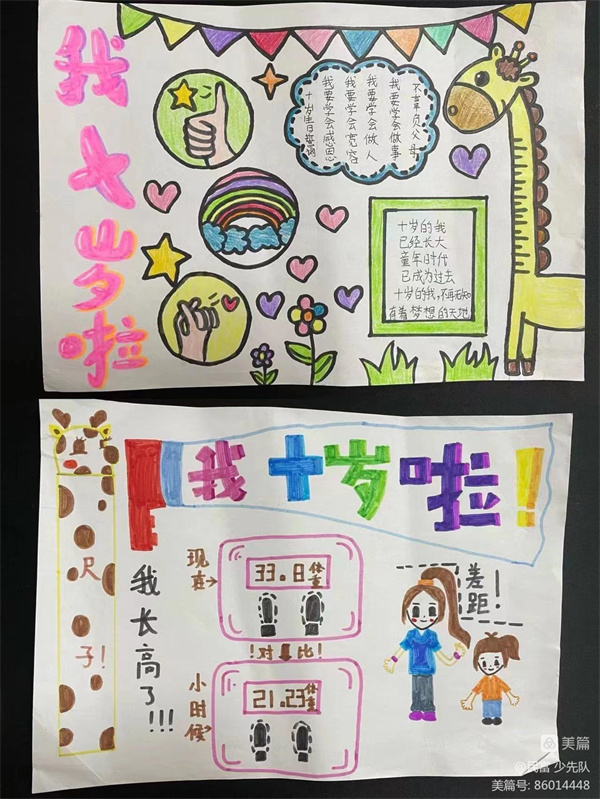 我十岁啦
不辜负父母
我要学会做事
我要学会做人
我要学会宽容
我要学会感恩
十岁生日誓词
十岁的我
已经长大
童年时代
已成为过去
十岁的我,不再无知
有着梦想的天地
我十岁啦!
尺子!
我长高了!!!
现在→
33.8体重
!对比!
小时候→
21.23体重
差距!
美篇
@民富 少先队
美篇号: 86014448